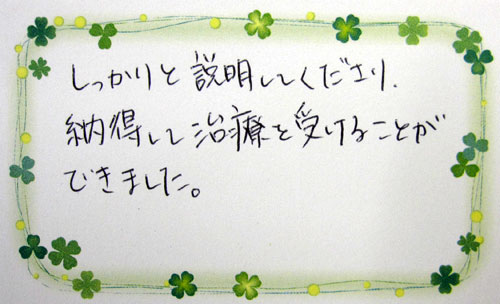 しっかりと説明してくださり、
納得して治療を受けることが
できました。